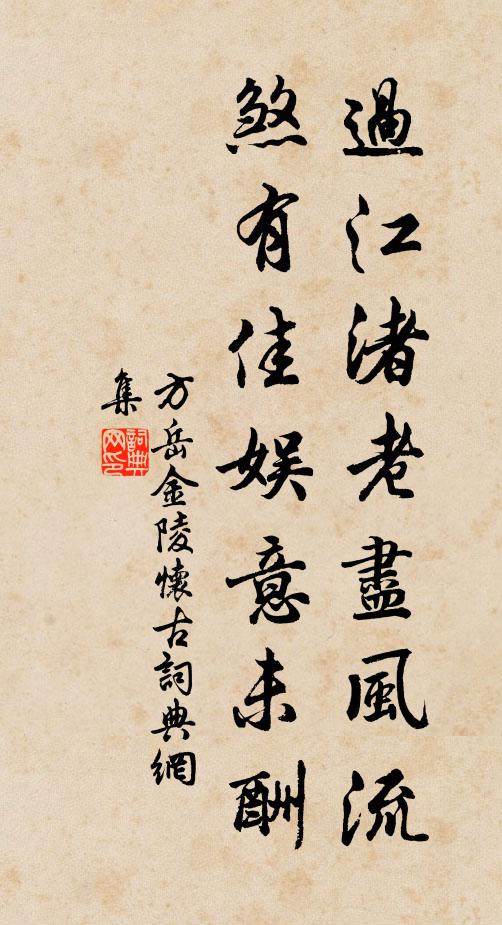 過江渚老盡風流
煞有佳娱意未酬
方岳金陵懷古詞典網
集
詞典
网印